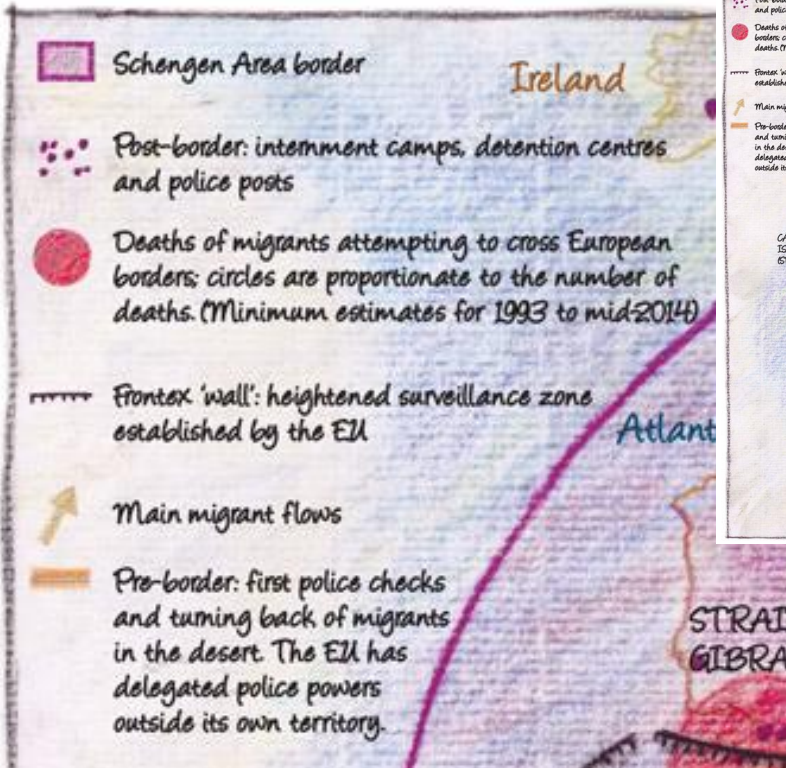 Schengen Area border
Ireland
Post-border: internment camps, detention centres
and police posts
Deaths of migrants attempting to cross European
borders; circles are proportionate to the number of
deaths. (Minimum estimates for 1993 to mid-2014)
Frontex 'wall': heightened surveillance zone
established by the EU
Atlant
Main migrant flows
Pre-border: first police checks
and turning back of migrants
in the desert. The EU has
delegated police powers
outside its own territory.
STRAI
GIBRA